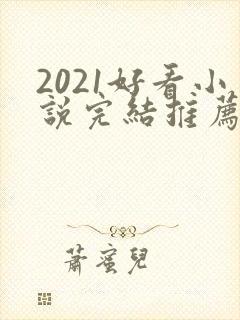 2021好看小
說完結推薦
蕭蜜兒